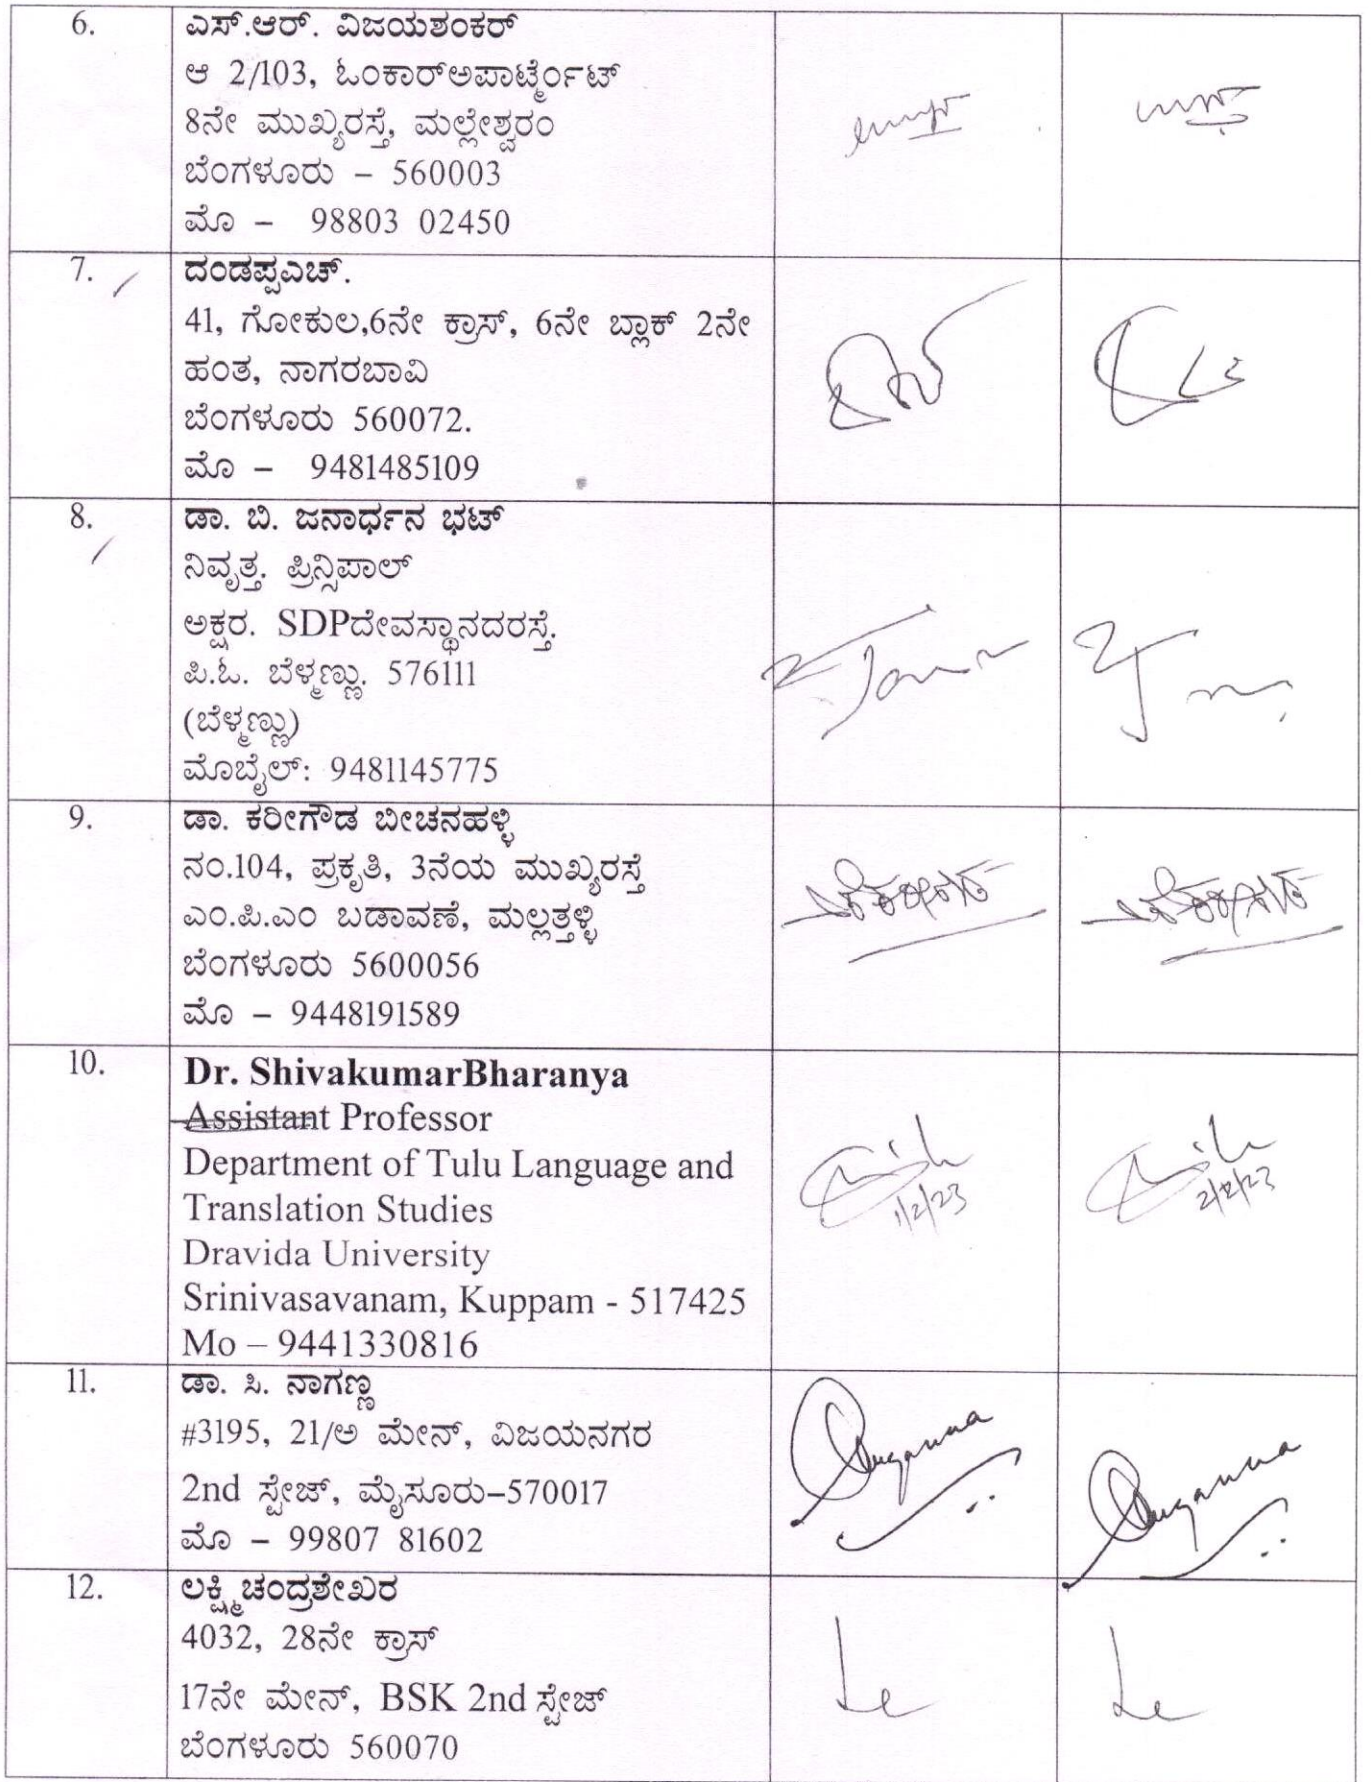 6.
ಎಸ್.ಆರ್. ವಿಜಯಶಂಕರ್
ಆ 2/103, ಓಂಕಾರ್ಅಪಾರ್ಟ್ಮೆಂಟ್
8ನೇ ಮುಖ್ಯರಸ್ತೆ, ಮಲ್ಲೇಶ್ವರಂ
ಬೆಂಗಳೂರು – 560003
ಮೊ – 98803 02450
7.
ದಂಡಪ್ಪಎಚ್.
41, ಗೋಕುಲ,6ನೇ ಕ್ರಾಸ್, 6ನೇ ಬ್ಲಾಕ್ 2ನೇ
ಹಂತ, ನಾಗರಬಾವಿ
ಬೆಂಗಳೂರು 560072.
ಮೊ – 9481485109
8.
ಡಾ. ಬಿ. ಜನಾರ್ಧನ ಭಟ್
ನಿವೃತ್ತ. ಪ್ರಿನ್ಸಿಪಾಲ್
ಅಕ್ಷರ. SDPದೇವಸ್ಥಾನದರಸ್ತೆ.
ಪಿ.ಓ. ಬೆಳ್ಮಣ್ಣು. 576111
(ಬೆಳ್ಮಣ್ಣು)
ಮೊಬೈಲ್: 9481145775
9.
ಡಾ. ಕರೀಗೌಡ ಬೀಚನಹಳ್ಳಿ
ನಂ.104, ಪ್ರಕೃತಿ, 3ನೆಯ ಮುಖ್ಯರಸ್ತೆ
ಎಂ.ಪಿ.ಎಂ ಬಡಾವಣೆ, ಮಲ್ಲತ್ತಳ್ಳಿ
ಬೆಂಗಳೂರು 5600056
ಮೊ – 9448191589
10.
Dr. ShivakumarBharanya
Assistant Professor
Department of Tulu Language and
Translation Studies
Dravida University
Srinivasavanam, Kuppam - 517425
Mo – 9441330816
1/2/23
2/2/23
11.
ಡಾ. ಸಿ. ನಾಗಣ್ಣ
#3195, 21/ಅ ಮೇನ್, ವಿಜಯನಗರ
2nd ಸ್ಟೇಜ್, ಮೈಸೂರು–570017
ಮೊ – 99807 81602
12.
ಲಕ್ಷ್ಮಿಚಂದ್ರಶೇಖರ
4032, 28ನೇ ಕ್ರಾಸ್
17ನೇ ಮೇನ್, BSK 2nd ಸ್ಟೇಜ್
ಬೆಂಗಳೂರು 560070